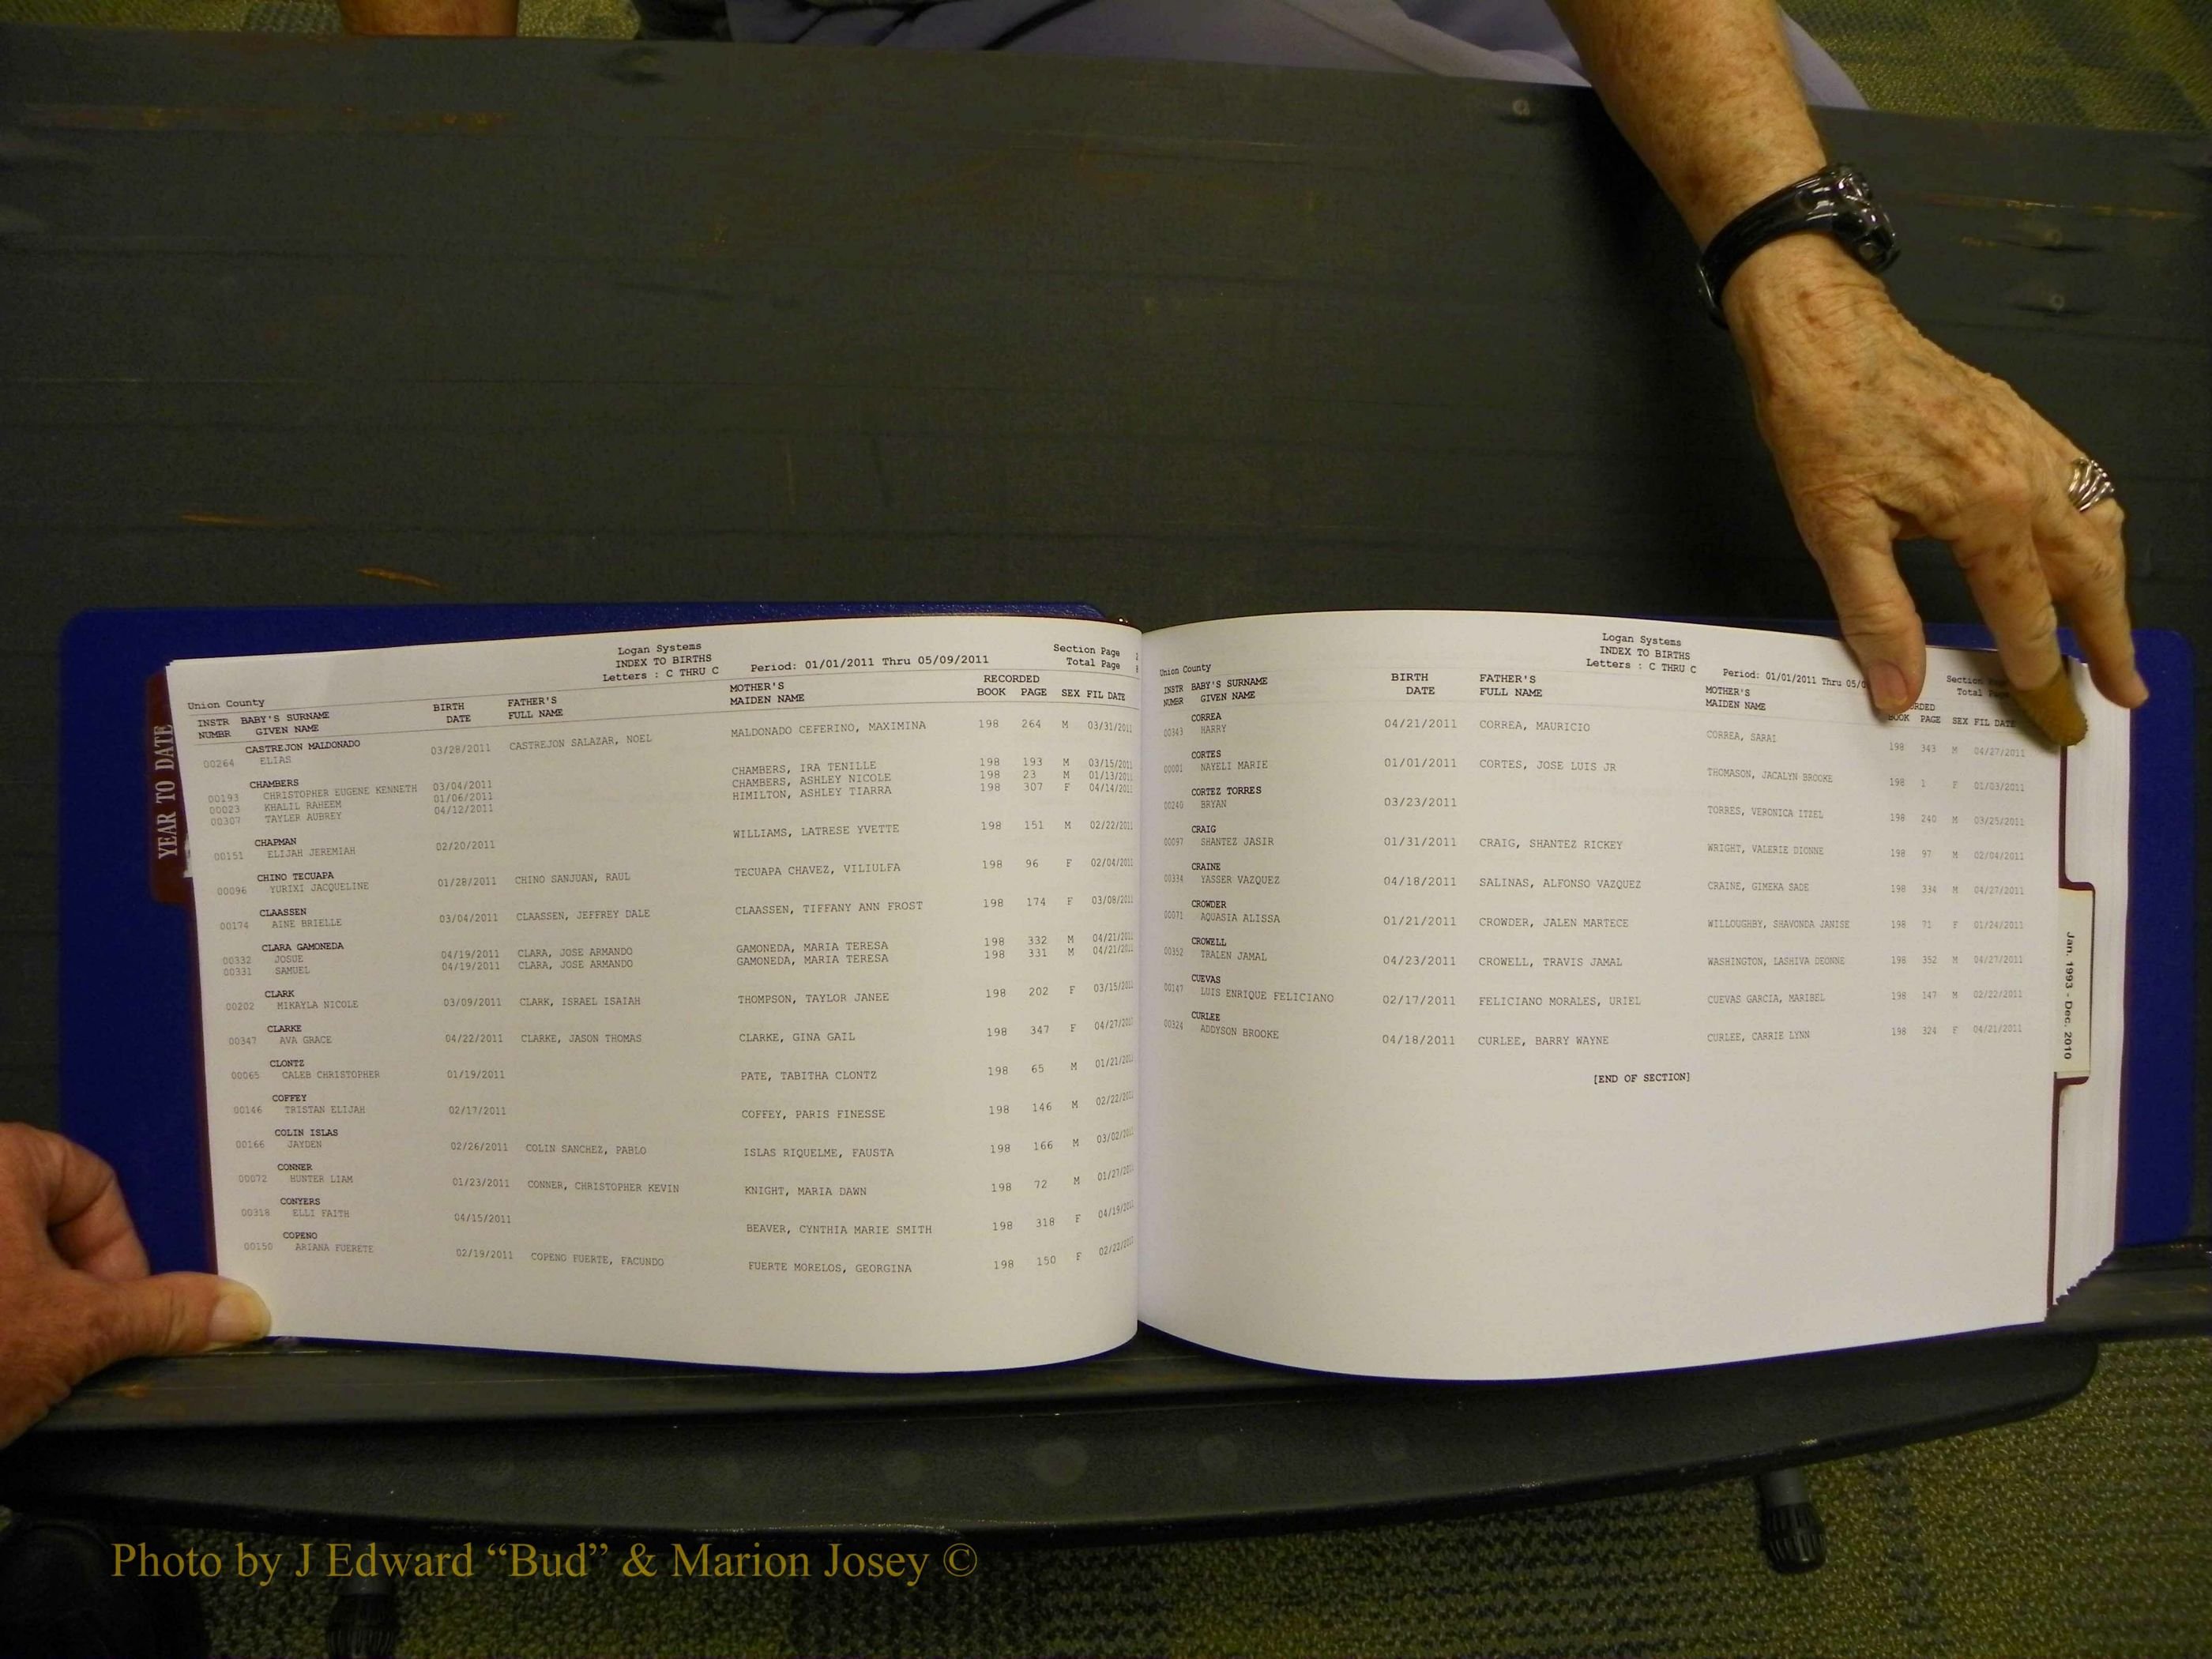 YEAR TO DATE
Logan Systems
INDEX TO BIRTHS
Letters : C THRU C
Period: 01/01/2011 Thru 05/09/2011
Section Page
Total Page
Union County
INSTR BABY'S SURNAME BIRTH FATHER'S MOTHER'S RECORDED
NUMBR GIVEN NAME DATE FULL NAME MAIDEN NAME BOOK PAGE SEX FIL DATE
CASTREJON MALDONADO
00264 ELIAS 03/28/2011 CASTREJON SALAZAR, NOEL MALDONADO CEFERINO, MAXIMINA 198 264 M 03/31/2011
CHAMBERS
00193 CHRISTOPHER EUGENE KENNETH 03/04/2011 CHAMBERS, IRA TENILLE 198 193 M 03/15/2011
00023 KHALIL RAHEEM 01/06/2011 CHAMBERS, ASHLEY NICOLE 198 23 M 01/13/2011
00307 TAYLER AUBREY 04/12/2011 HIMILTON, ASHLEY TIARRA 198 307 F 04/14/2011
CHAPMAN
00151 ELIJAH JEREMIAH 02/20/2011 WILLIAMS, LATRESE YVETTE 198 151 M 02/22/2011
CHINO TECUAPA
00096 YURIXI JACQUELINE 01/28/2011 CHINO SANJUAN, RAUL TECUAPA CHAVEZ, VILIULFA 198 96 F 02/04/2011
CLAASSEN
00174 AINE BRIELLE 03/04/2011 CLAASSEN, JEFFREY DALE CLAASSEN, TIFFANY ANN FROST 198 174 F 03/08/2011
CLARA GAMONEDA
00332 JOSUE 04/19/2011 CLARA, JOSE ARMANDO GAMONEDA, MARIA TERESA 198 332 M 04/21/2011
00331 SAMUEL 04/19/2011 CLARA, JOSE ARMANDO GAMONEDA, MARIA TERESA 198 331 M 04/21/2011
CLARK
00202 MIKAYLA NICOLE 03/09/2011 CLARK, ISRAEL ISAIAH THOMPSON, TAYLOR JANEE 198 202 F 03/15/2011
CLARKE
00347 AVA GRACE 04/22/2011 CLARKE, JASON THOMAS CLARKE, GINA GAIL 198 347 F 04/27/2011
CLONTZ
00065 CALEB CHRISTOPHER 01/19/2011 PATE, TABITHA CLONTZ 198 65 M 01/21/2011
COFFEY
00146 TRISTAN ELIJAH 02/17/2011 COFFEY, PARIS FINESSE 198 146 M 02/22/2011
COLIN ISLAS
00166 JAYDEN 02/26/2011 COLIN SANCHEZ, PABLO ISLAS RIQUELME, FAUSTA 198 166 M 03/02/2011
CONNER
00072 HUNTER LIAM 01/23/2011 CONNER, CHRISTOPHER KEVIN KNIGHT, MARIA DAWN 198 72 M 01/27/2011
CONYERS
00318 ELLI FAITH 04/15/2011 BEAVER, CYNTHIA MARIE SMITH 198 318 F 04/19/2011
COPENO
00150 ARIANA FUERETE 02/19/2011 COPENO FUERTE, FACUNDO FUERTE MORELOS, GEORGINA 198 150 F 02/22/2011
Logan Systems
INDEX TO BIRTHS
Letters : C THRU C
Period: 01/01/2011 Thru 05/0
Section
Total
Union County
INSTR BABY'S SURNAME BIRTH FATHER'S MOTHER'S ORDED
NUMBR GIVEN NAME DATE FULL NAME MAIDEN NAME BOOK PAGE SEX FIL DATE
CORREA
00343 HARRY 04/21/2011 CORREA, MAURICIO CORREA, SARAI 198 343 M 04/27/2011
CORTES
00001 NAYELI MARIE 01/01/2011 CORTES, JOSE LUIS JR THOMASON, JACALYN BROOKE 198 1 F 01/03/2011
CORTEZ TORRES
00240 BRYAN 03/23/2011 TORRES, VERONICA ITZEL 198 240 M 03/25/2011
CRAIG
00097 SHANTEZ JASIR 01/31/2011 CRAIG, SHANTEZ RICKEY WRIGHT, VALERIE DIONNE 198 97 M 02/04/2011
CRAINE
00334 YASSER VAZQUEZ 04/18/2011 SALINAS, ALFONSO VAZQUEZ CRAINE, GIMEKA SADE 198 334 M 04/27/2011
CROWDER
00071 AQUASIA ALISSA 01/21/2011 CROWDER, JALEN MARTECE WILLOUGHBY, SHAVONDA JANISE 198 71 F 01/24/2011
CROWELL
00352 TRALEN JAMAL 04/23/2011 CROWELL, TRAVIS JAMAL WASHINGTON, LASHIVA DEONNE 198 352 M 04/27/2011
CUEVAS
00147 LUIS ENRIQUE FELICIANO 02/17/2011 FELICIANO MORALES, URIEL CUEVAS GARCIA, MARIBEL 198 147 M 02/22/2011
CURLEE
00324 ADDYSON BROOKE 04/18/2011 CURLEE, BARRY WAYNE CURLEE, CARRIE LYNN 198 324 F 04/21/2011
[END OF SECTION]
Jan. 1993 - Dec. 2010
Photo by J Edward “Bud” & Marion Josey ©